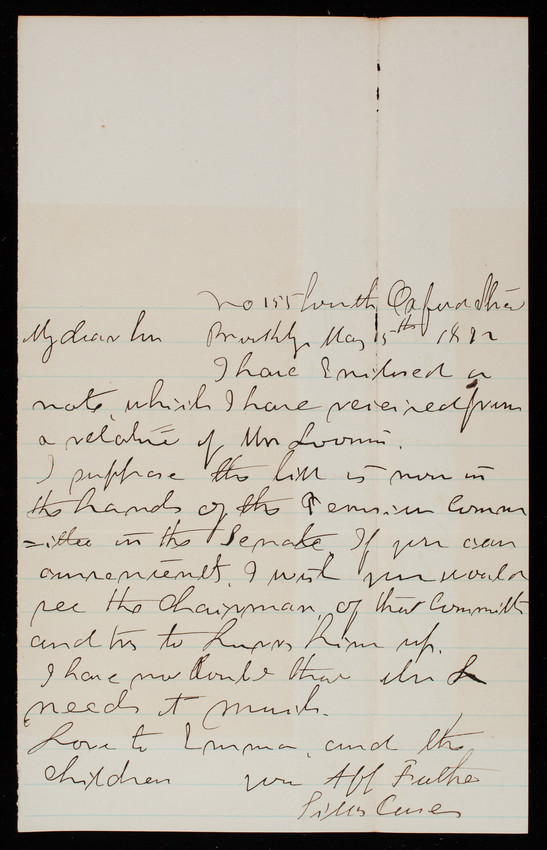 No 155 South Oxford Street
My dear Son Brooklyn May 5th 1882
I have Enclosed a
note, which I have received from
a relative of Mrs Loomis.
I suppose the bill is now in
the hands of the Pension Comm
=ittee in the Senate. If you can
convenient, I wish you would
see the Chairman, of that Committee
and try to hurry him up.
I have no doubt that she
needs it much.
Love to Emma, and the
children your Aff Father
Silas Casey